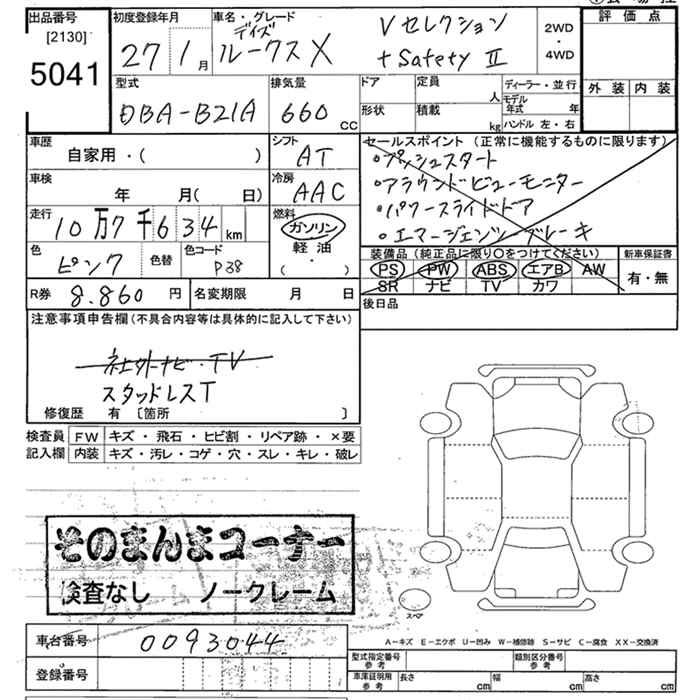 出品番号 [2130] 5041
初度登録年月 27年1月
車名・グレード デイズ ルークス X Vセレクション +Safety II
2WD・4WD
評価点
外装 内装
型式 DBA-B21A
排気量 660 CC
ドア 形状
定員 人
積載 kg
ディーラー・並行
モデル年式 年
ハンドル 左・右
車歴 自家用・( )
シフト AT
車検 年 月( 日)
冷房 AAC
走行 10万7千634 km
燃料 ガソリン 軽油 ( ・ )
色 ピンク
色替
色コード P38
R券 8.860 円
名変期限 月 日
セールスポイント (正常に機能するものに限ります)
・プッシュスタート
・アラウンドビューモニター
・パワースライドドア
・エマージェンシーブレーキ
装備品 (純正品に限り○をつけてください)
PS PW ABS エアB AW
SR ナビ TV カワ
新車保証書 有・無
後日品
注意事項申告欄 (不具合内容等は具体的に記入して下さい)
社外ナビ・TV
スタッドレスT
修復歴 有 〔箇所 〕
検査員記入欄
FW キズ・飛石・ヒビ割・リペア跡・×要
内装 キズ・汚レ・コゲ・穴・スレ・キレ・破レ
そのまんまコーナー
検査なし ノークレーム
スペア
A－キズ E－エクボ U－凹み W－補修跡 S－サビ C－腐食 XX－交換済
車台番号 0093044
登録番号
型式指定番号 参考
類別区分番号 参考
車庫証明用 参考 長さ cm 幅 cm 高さ cm